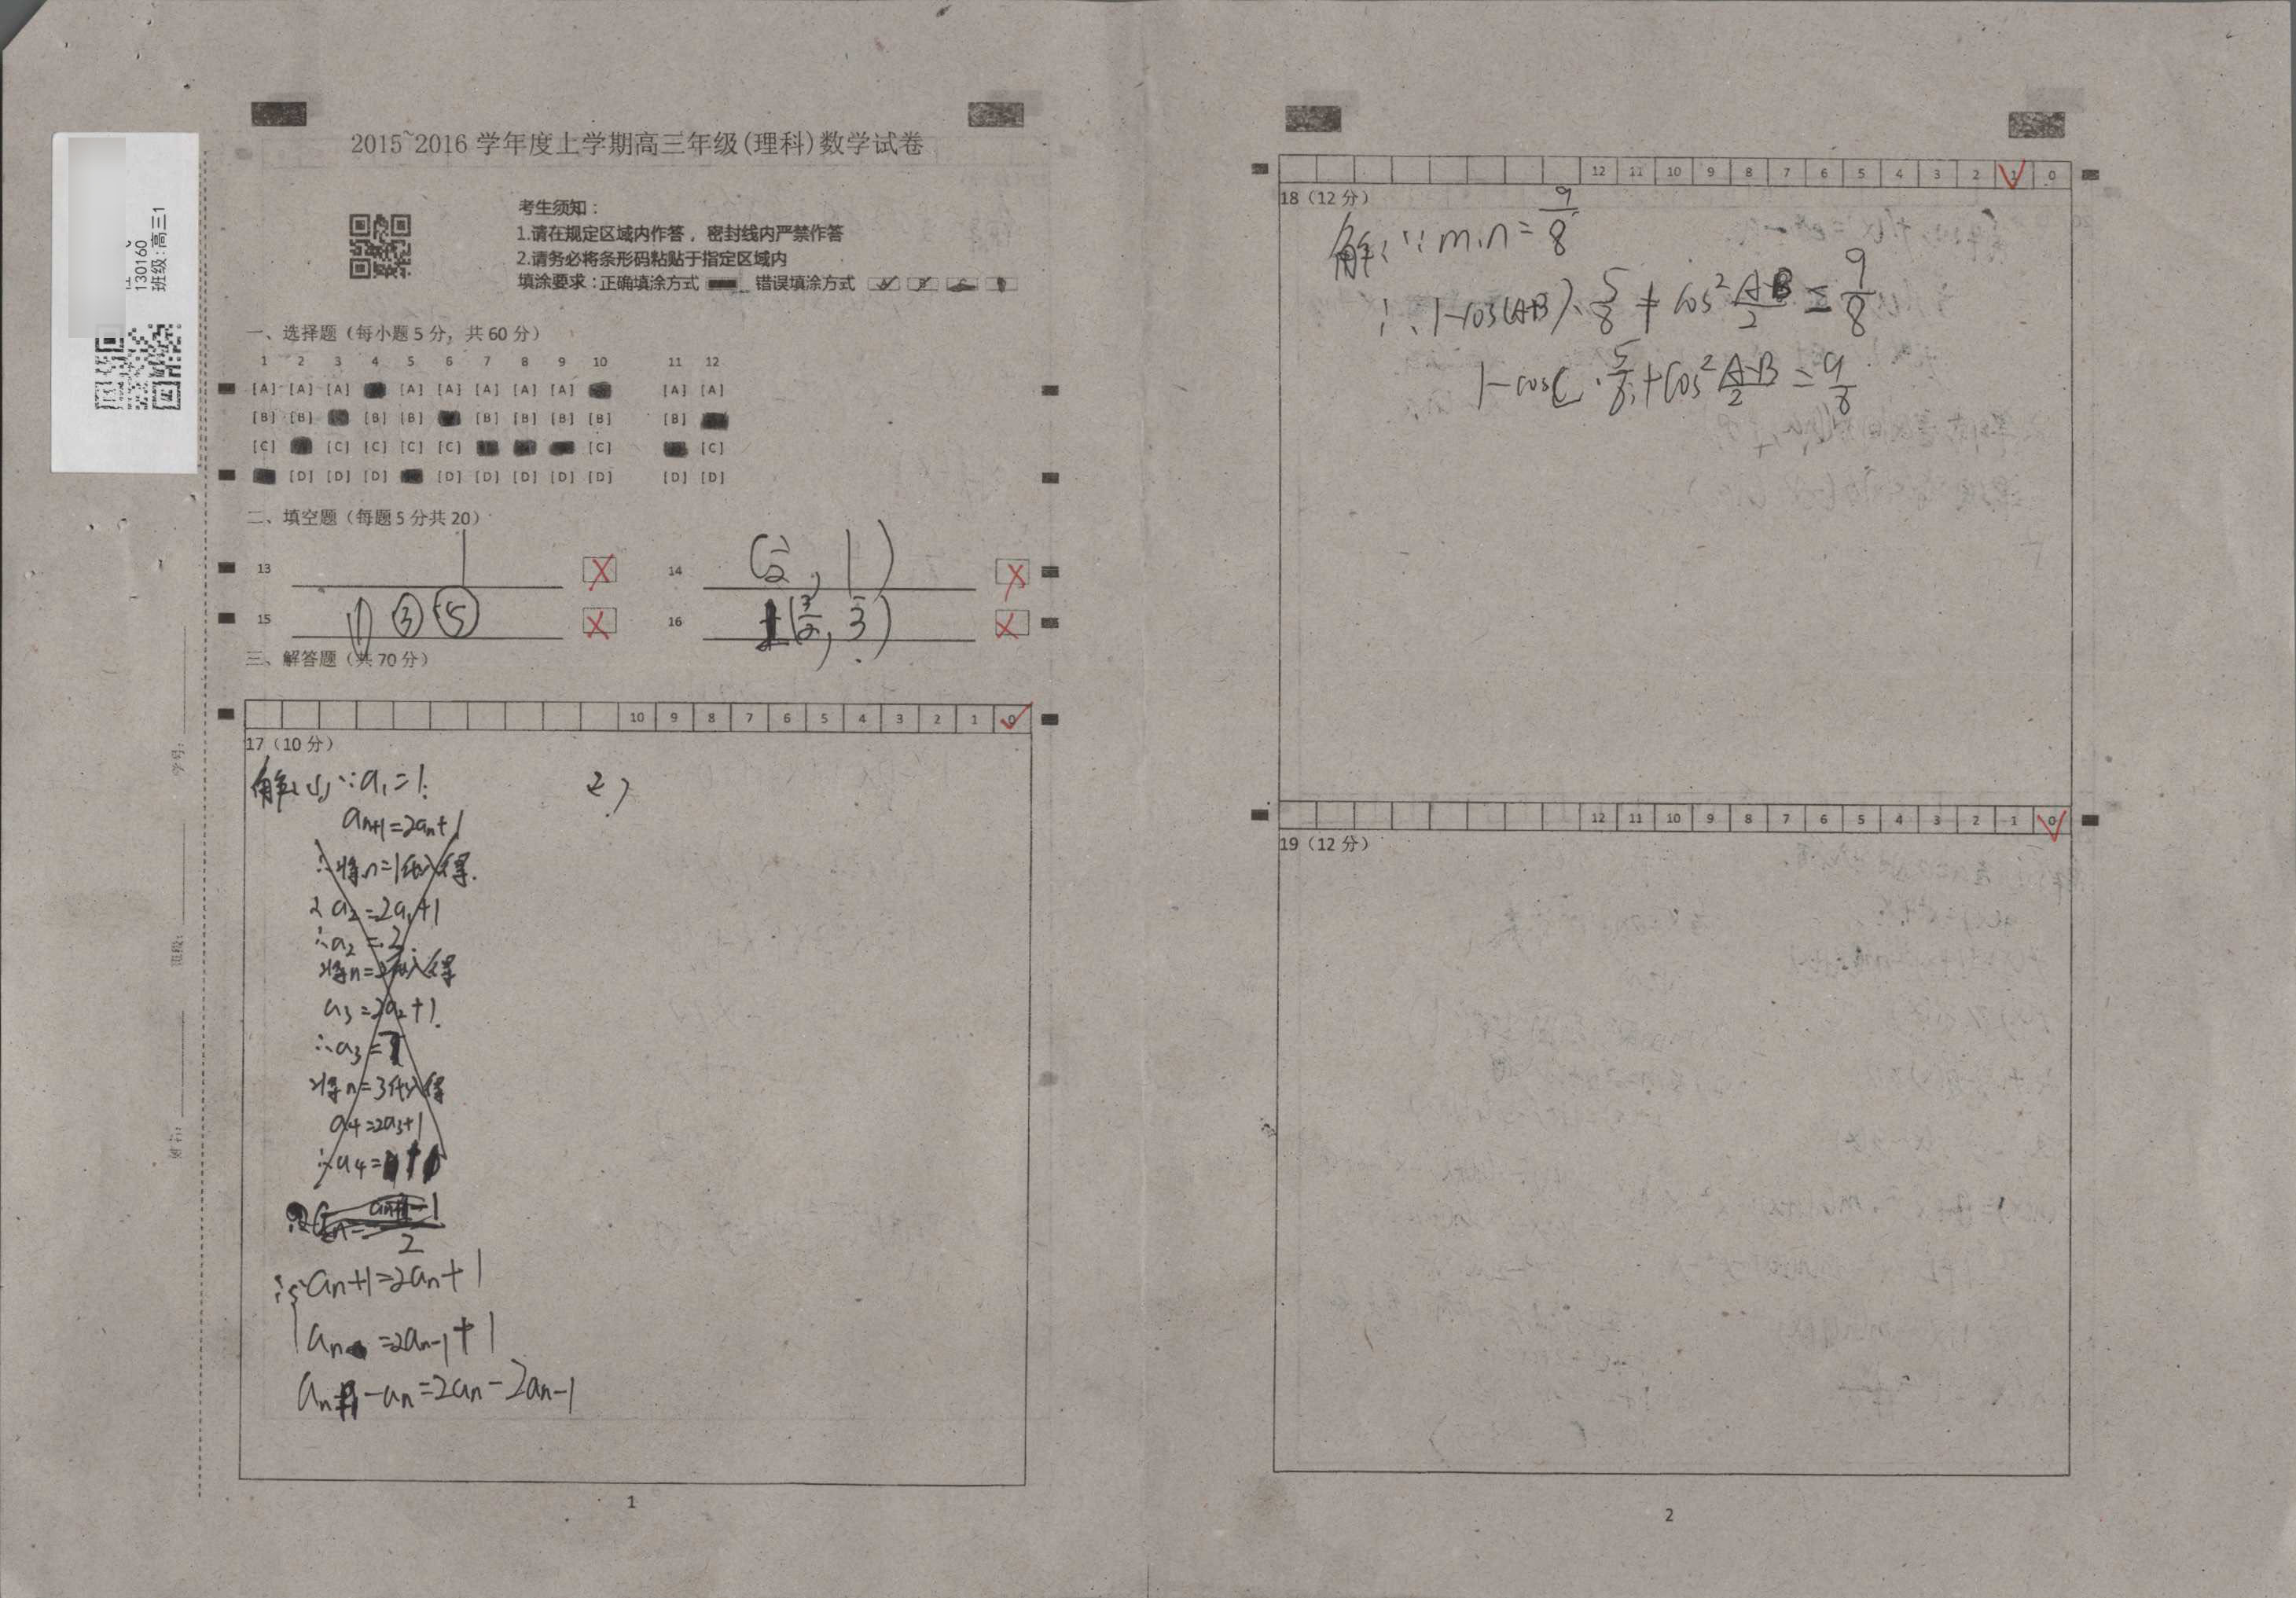 130160
班级:高三1
学号:
班级:
姓名:
2015~2016 学年度上学期高三年级(理科)数学试卷
考生须知:
1.请在规定区域内作答,密封线内严禁作答
2.请务必将条形码粘贴于指定区域内
填涂要求:正确填涂方式 错误填涂方式
一、选择题(每小题 5 分,共 60 分)
1 2 3 4 5 6 7 8 9 10 11 12
[A] [A] [A] [A] [A] [A] [A] [A] [A] [A]
[B] [B] [B] [B] [B] [B] [B] [B] [B]
[C] [C] [C] [C] [C] [C] [C]
[D] [D] [D] [D] [D] [D] [D] [D] [D] [D]
二、填空题(每题 5 分共 20)
13 1 14 (1/2, 1)
15 ①③⑤ 16 (3/2, 3)
三、解答题(共 70 分)
10 9 8 7 6 5 4 3 2 1 0
17(10 分)
解:(1)∵a₁=1. 2)
aₙ₊₁=2aₙ+1
∴将n=1代入得.
a₂=2a₁+1
∴a₂=3
将n=2代入得
a₃=2a₂+1
∴a₃=7
将n=3代入得
a₄=2a₃+1
∴a₄=
aₙ₊₁=2aₙ+1
aₙ=2aₙ₋₁+1
aₙ₊₁-aₙ=2aₙ-2aₙ₋₁
1
12 11 10 9 8 7 6 5 4 3 2 1 0
18(12 分)
解:∵m·n=9/8
∴1-cos(A+B)·5/8+cos²(A-B)/2=9/8
1-cosC·5/8+cos²(A-B)/2=9/8
12 11 10 9 8 7 6 5 4 3 2 1 0
19(12 分)
2